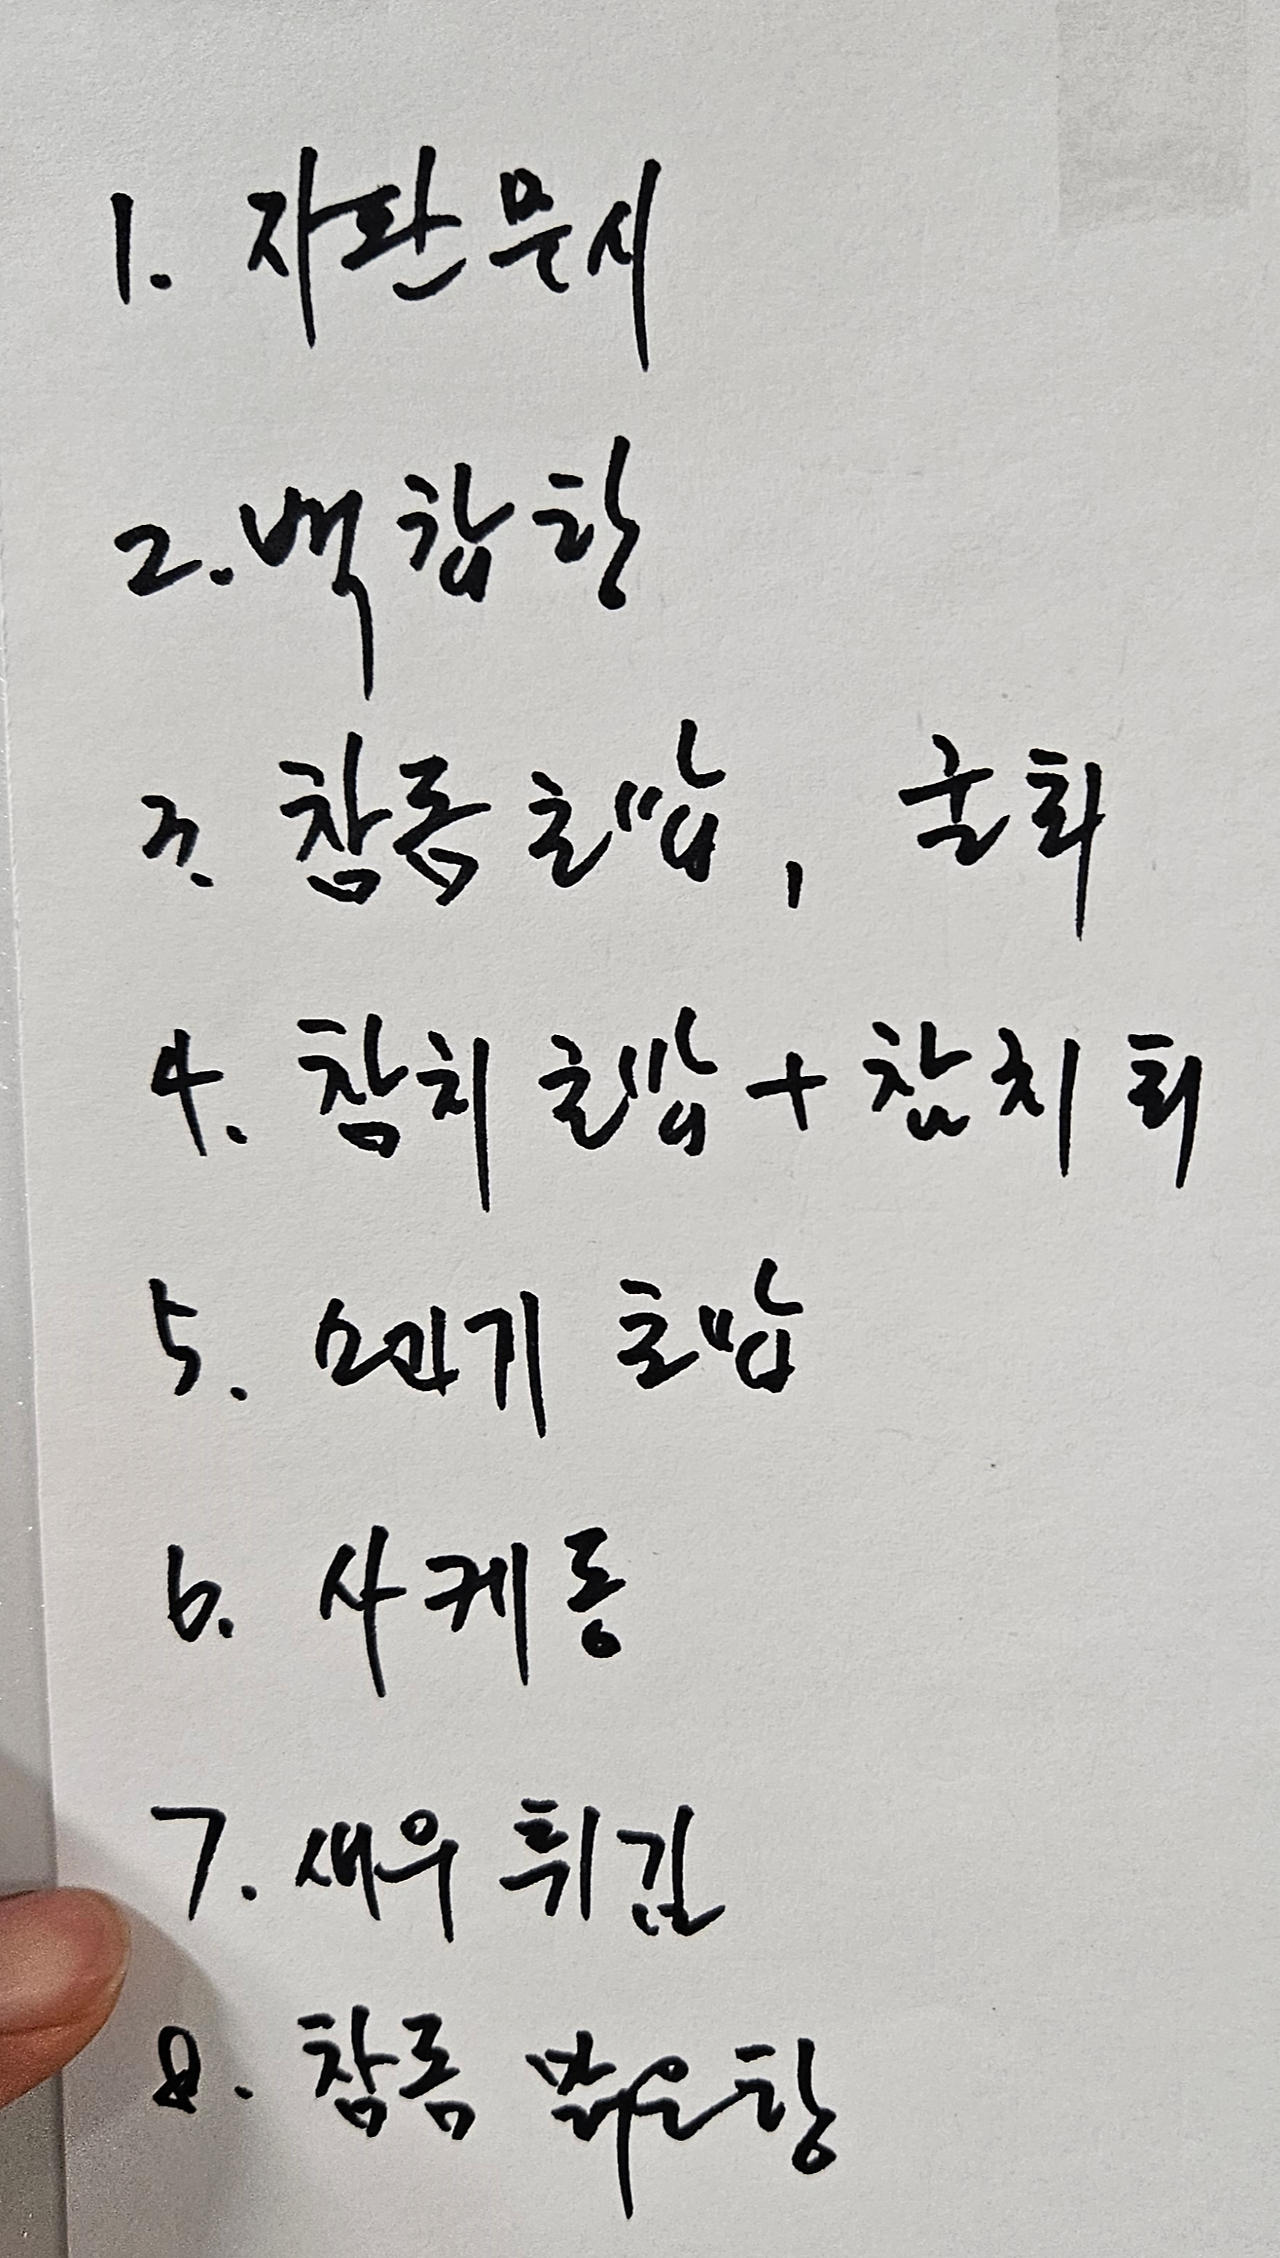 1. 자판문시
2. 백합탕
3. 참돔 초밥, 굴회
4. 참치 초밥 + 참치 회
5. 소고기 초밥
6. 사케동
7. 새우 튀김
8. 참돔 맑은탕